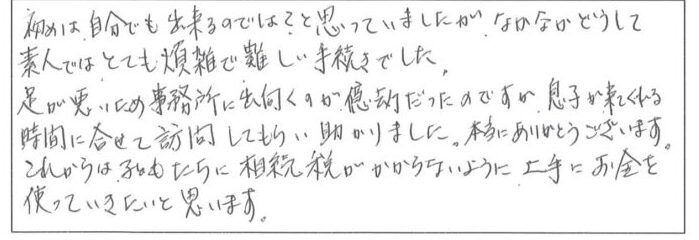 初めは自分でも出来るのでは?と思っていましたが、なかなかどうして
素人ではとても煩雑で難しい手続きでした。
足が悪いため事務所に出向くのが億劫だったのですが、息子が来てくれる
時間に合せて訪問してもらい助かりました。本当にありがとうございます。
これからは子どもたちに相続税がかからないように上手にお金を
使っていきたいと思います。